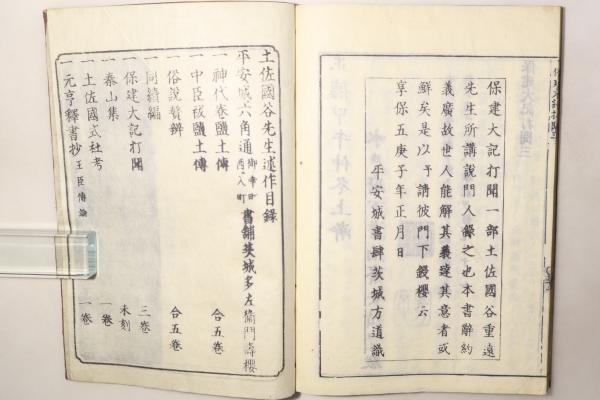 保建大記打聞一部土佐國谷重遠
先生所講說門人錄之也本書辭約
義廣故世人能解其義達其意者或
鮮矣是以予請彼門下鋟櫻云
享保五庚子年正月日
平安城書肆茨城方道識
土佐國谷先生述作目錄
平安城六角通御幸町西ヘ入町書舗茨城多左衞門壽櫻
一神代卷鹽土傳 合五卷
一中臣祓鹽土傳
一俗說贅辨 合五卷
同續編
一保建大記打聞 三卷
一泰山集 未刻
一土佐國式社考 一卷
一元亨釋書抄王臣傳論 一卷